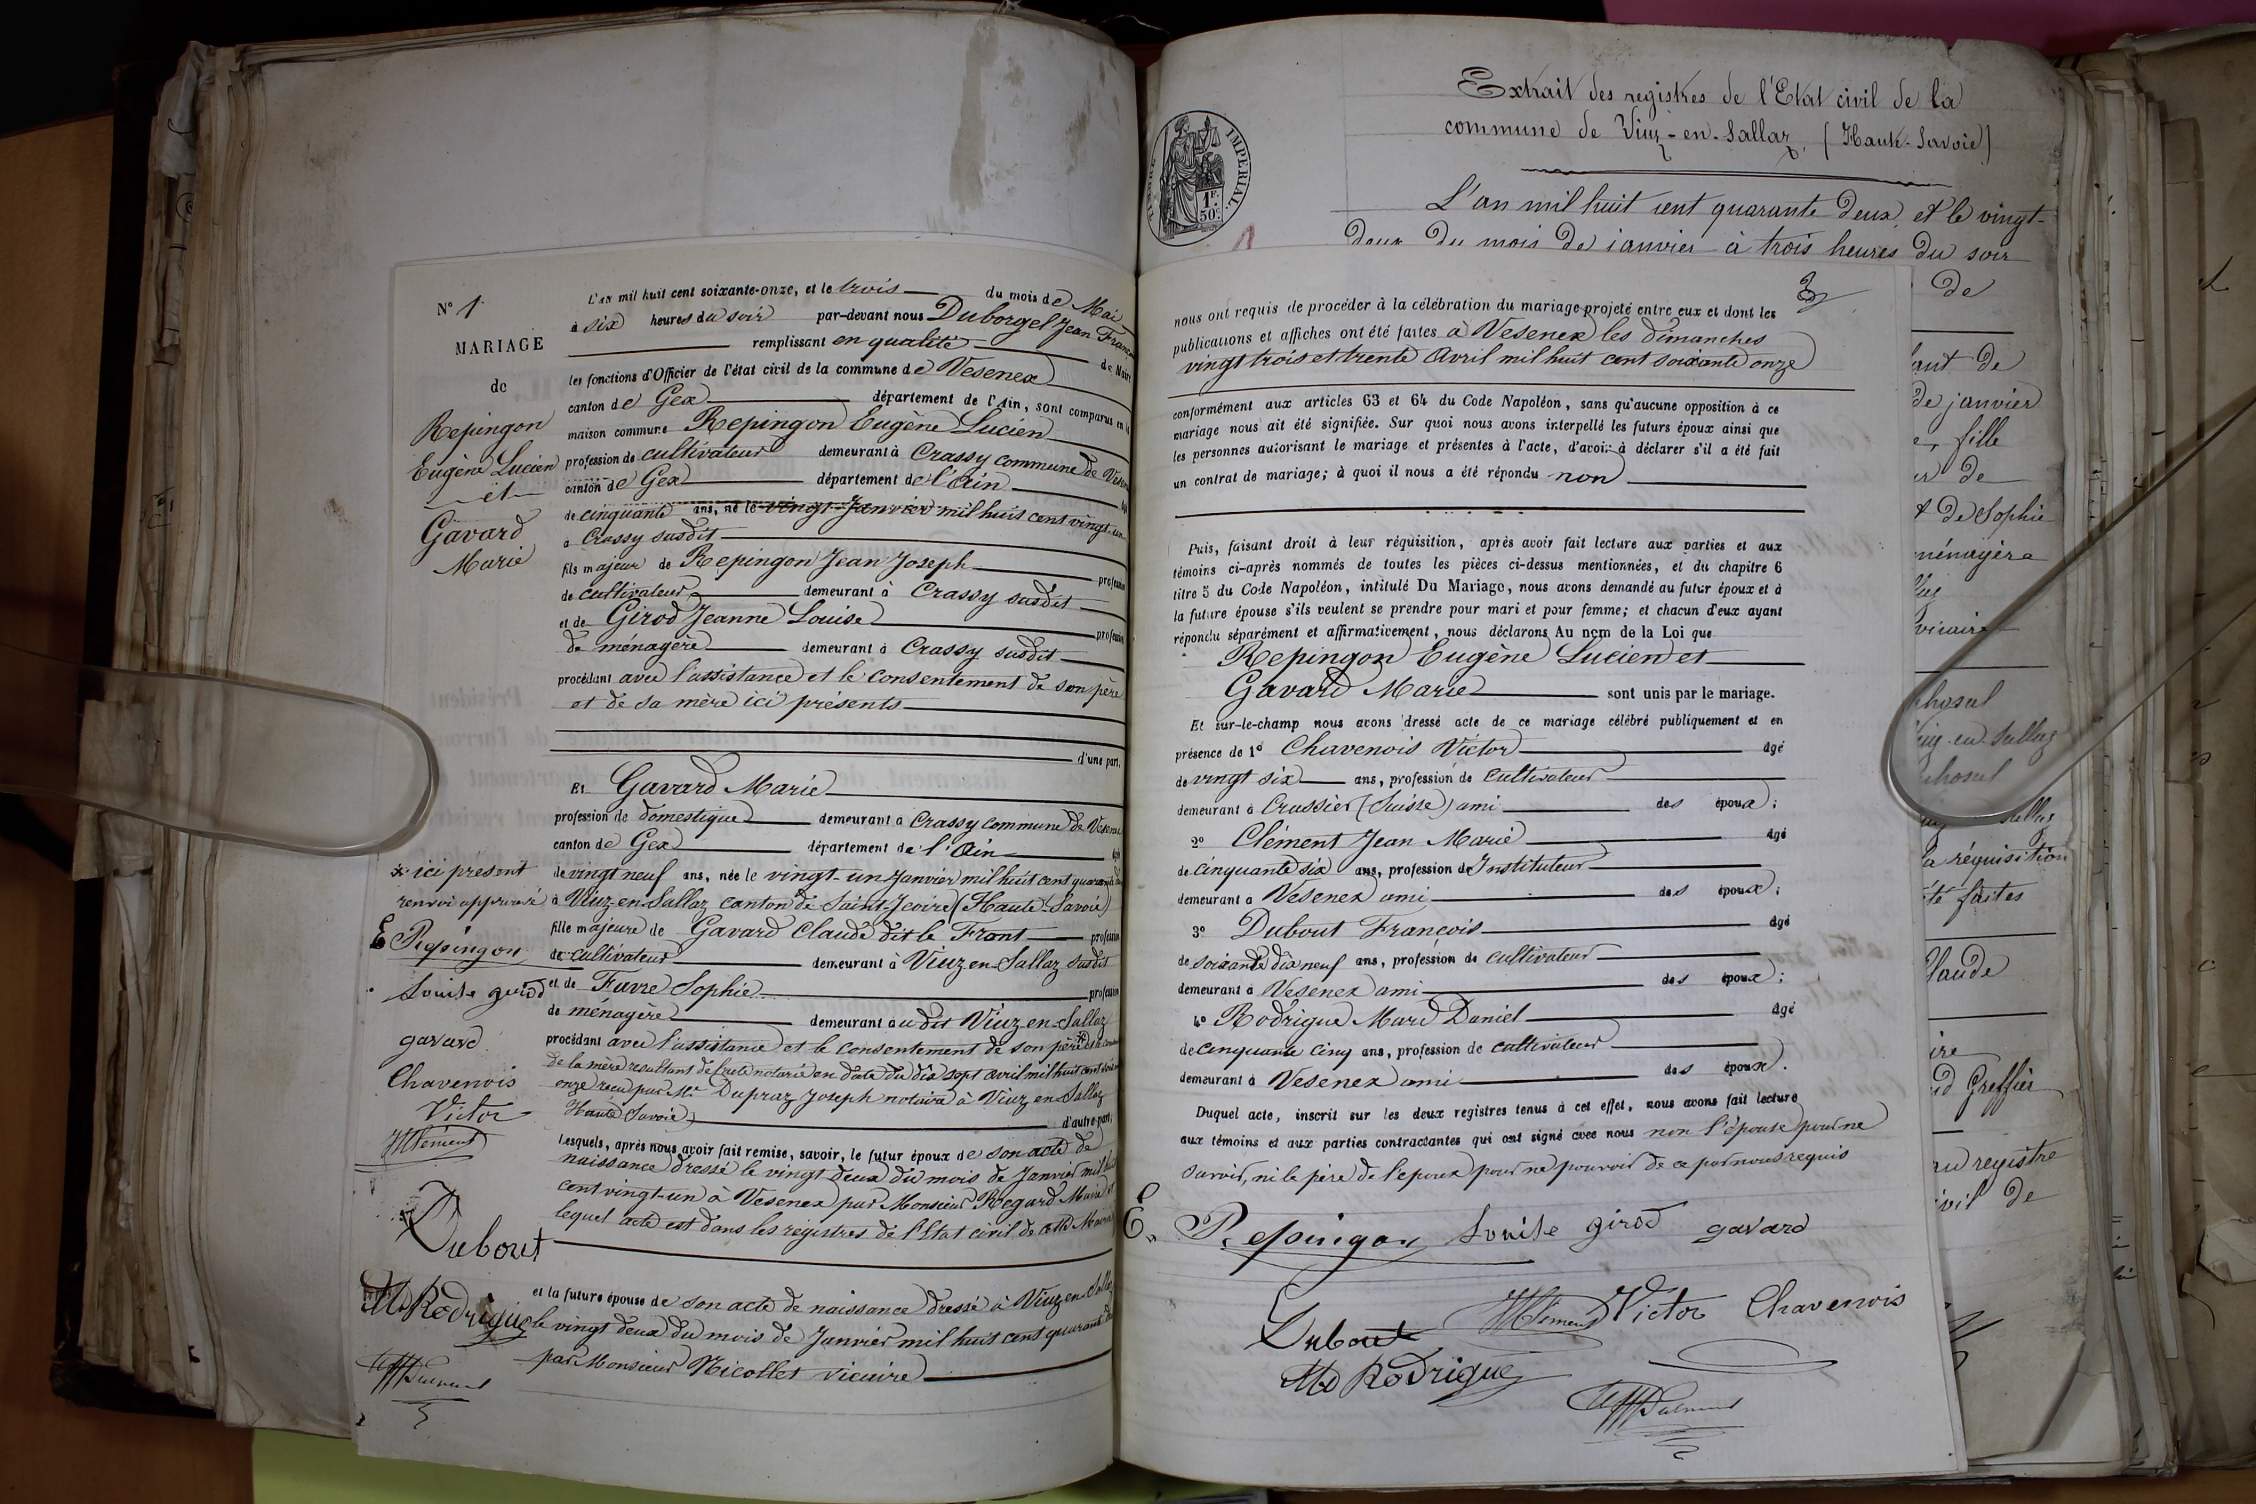 N° 1
MARIAGE
de
Repingon
Eugène Lucien
et
Gavard
Marie
L'an mil huit cent soixante-onze, et le trois du mois de Mai
à six heures du soir par-devant nous Duborgel Jean
remplissant en qualité de Maire
les fonctions d'Officier de l'état civil de la commune de Vesenex
canton de Gex département de l'Ain, sont comparus en la
maison commune Repingon Eugène Lucien
profession de cultivateur demeurant à Crassy commune de
canton de Gex département de l'Ain
de cinquante ans, né le vingt Janvier mil huit cent vingt-un
à Crassy susdit
fils majeur de Repingon Jean Joseph profession
de cultivateur demeurant à Crassy susdit
et de Girod Jeanne Louise profession
de ménagère demeurant à Crassy susdit
procédant avec l'assistance et le consentement de son père
et de sa mère ici présents
d'une part.
Et Gavard Marie
profession de domestique demeurant à Crassy commune de
canton de Gex département de l'Ain
de vingt neuf ans, née le vingt-un Janvier mil huit cent
à Viuz-en-Sallaz canton de Saint-Jeoire (Haute-Savoie)
fille majeure de Gavard Claude dit le Front profession
de cultivateur demeurant à Viuz-en-Sallaz susdit
et de Favre Sophie profession
de ménagère demeurant au dit Viuz-en-Sallaz
procédant avec l'assistance et le consentement de son père
de la mère résultant de notarié en date du dix sept avril mil huit cent
onze reçu par Me Dupraz Joseph notaire à Viuz en Sallaz
Haute Savoie d'autre part;
Lesquels, après nous avoir fait remise, savoir, le futur époux de son acte de
naissance dressé le vingt deux du mois de Janvier mil
cent vingt-un à Vesenex par Monsieur Regard
lequel acte est dans les registres de l'Etat civil de cette
et la future épouse de son acte de naissance dressé à Viuz en
le vingt deux du mois de Janvier mil huit cent quarante
par Monsieur Nicollet vicaire
* ici présent
renvoi approuvé
E Repingon
Louise girod
gavard
Chavenois
Victor
Clément
Dubout
MD Rodrigue
Extrait des registres de l'Etat civil de la
commune de Viuz-en-Sallaz, (Haute-Savoie)
TIMBRE IMPERIAL
1F.
50c.
L'an mil huit cent quarante deux, et le vingt-
deux du mois de janvier à trois heures du soir
3
nous ont requis de procéder à la célébration du mariage projeté entre eux et dont les
publications et affiches ont été faites à Vesenex les dimanches
vingt trois et trente Avril mil huit cent soixante onze
conformément aux articles 63 et 64 du Code Napoléon, sans qu'aucune opposition à ce
mariage nous ait été signifiée. Sur quoi nous avons interpellé les futurs époux ainsi que
les personnes autorisant le mariage et présentes à l'acte, d'avoir à déclarer s'il a été fait
un contrat de mariage; à quoi il nous a été répondu non
Puis, faisant droit à leur réquisition, après avoir fait lecture aux parties et aux
témoins ci-après nommés de toutes les pièces ci-dessus mentionnées, et du chapitre 6
titre 5 du Code Napoléon, intitulé Du Mariage, nous avons demandé au futur époux et à
la future épouse s'ils veulent se prendre pour mari et pour femme; et chacun d'eux ayant
répondu séparément et affirmativement, nous déclarons Au nom de la Loi que
Repingon Eugène Lucien et
Gavard Marie sont unis par le mariage.
Et sur-le-champ nous avons dressé acte de ce mariage célébré publiquement et en
présence de 1° Chavenois Victor âgé
de vingt six ans, profession de cultivateur
demeurant à Crassier (Suisse) ami des époux;
2° Clément Jean Marie âgé
de cinquante six ans, profession de Instituteur
demeurant à Vesenex ami des époux;
3° Dubout François âgé
de soixante dix neuf ans, profession de cultivateur
demeurant à Vesenex ami des époux;
4° Rodrigue Marc Daniel âgé
de cinquante cinq ans, profession de cultivateur
demeurant à Vesenex ami des époux.
Duquel acte, inscrit sur les deux registres tenus à cet effet, nous avons fait lecture
aux témoins et aux parties contractantes qui ont signé avec nous non l'épouse pour ne
savoir, ni le père de l'époux pour ne pouvoir de ce par nous requis
E. Repingon Louise girod gavard
Clément Victor Chavenois
Dubout
MD Rodrigue
de
de janvier
fille
de
de Sophie
ménagère
vicaire
réquisition
faites
Greffier
registre
de